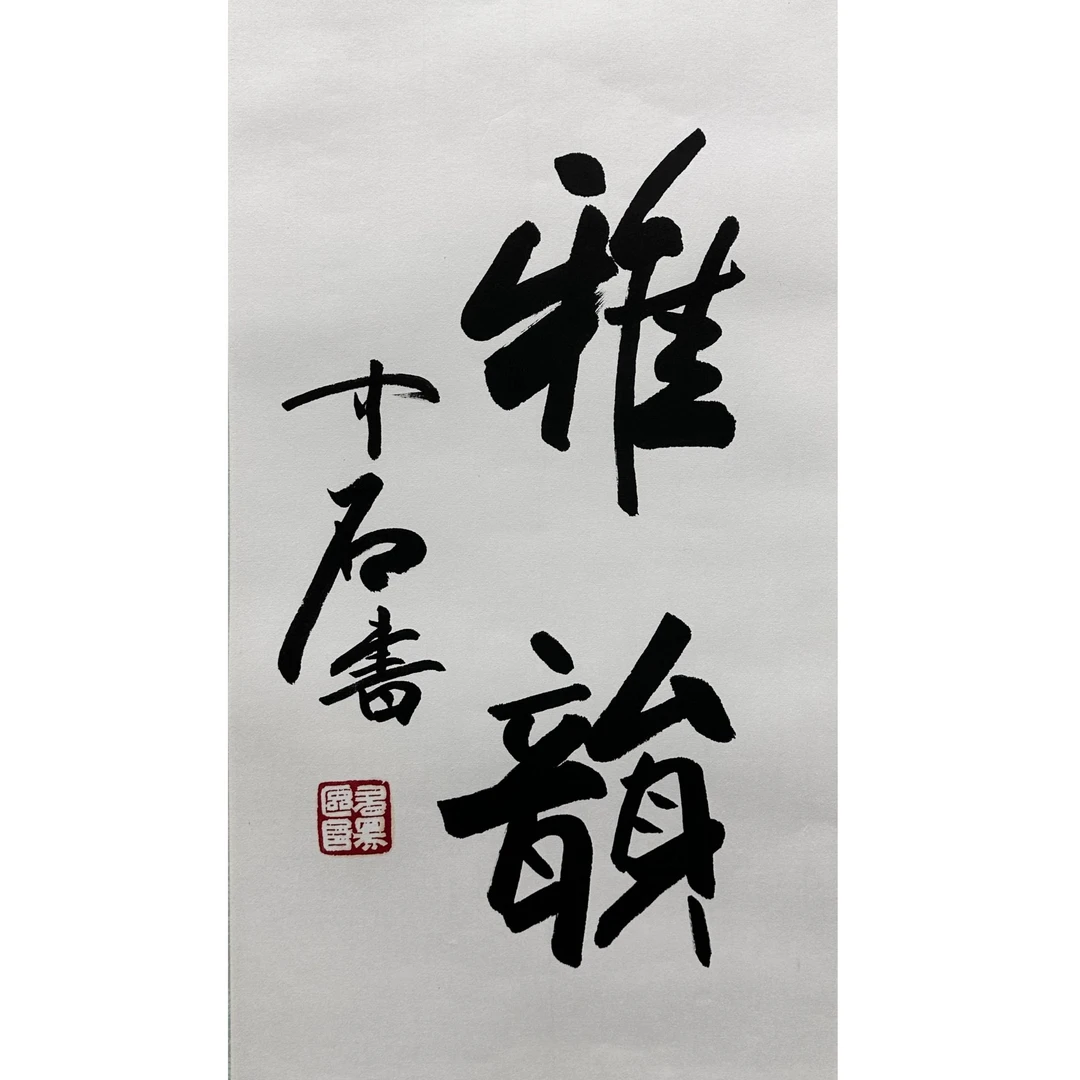 雅韻
石書